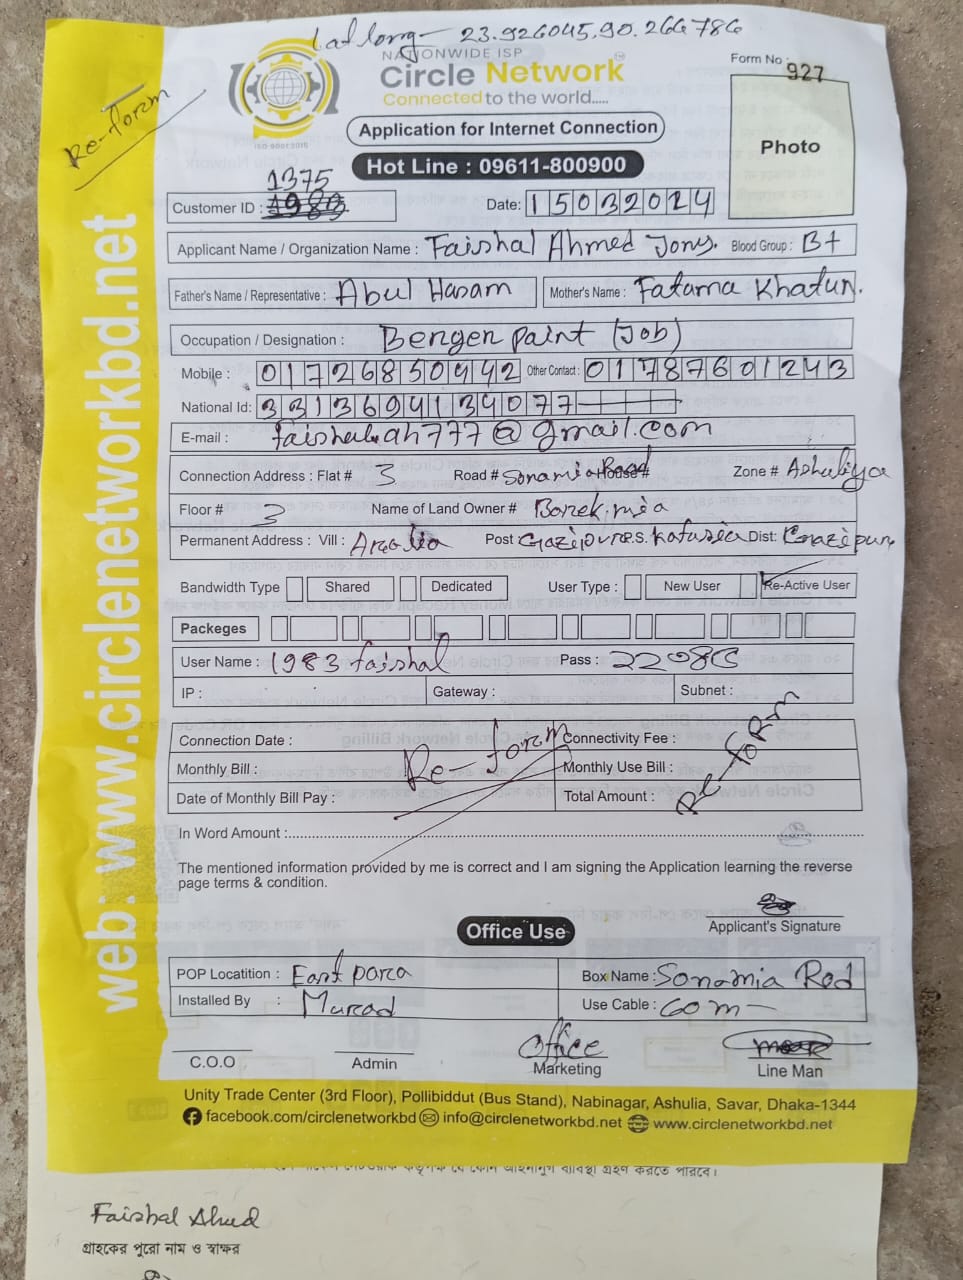 Lat long- 23.926045,90.266786
NATIONWIDE ISP
Circle Network
Connected to the world.....
ISO 9001:2015
Form No : 927
Re-form
Photo
Application for Internet Connection
Hot Line : 09611-800900
1375
Customer ID : 1983
Date: 15032024
Applicant Name / Organization Name : Faishal Ahmed Jony. Blood Group : B+
Father's Name / Representative : Abul Hasam Mother's Name : Fatama Khatun.
Occupation / Designation : Bergen paint (Job)
Mobile : 01726850442 Other Contact : 01787601243
National Id: 3313694134077
E-mail : faishalah777@gmail.com
Connection Address : Flat # 3 Road # Sonamia Road House # Zone # Ashuliya
Floor # 3 Name of Land Owner # Barek mia
Permanent Address : Vill : Post Gazipur P.S. Dist: Gazipur
Bandwidth Type Shared Dedicated User Type : New User Re-Active User
Packeges
User Name : 1983faishal Pass : 22086
IP : Gateway : Subnet :
Connection Date : Connectivity Fee :
Re-form
Re-form
Monthly Bill : Monthly Use Bill :
Date of Monthly Bill Pay : Total Amount :
In Word Amount :
The mentioned information provided by me is correct and I am signing the Application learning the reverse
page terms & condition.
Applicant's Signature
Office Use
POP Locatition : East para Box Name : Sonamia Rod
Installed By : Murad Use Cable : 60m
Office
C.O.O Admin Marketing Line Man
Unity Trade Center (3rd Floor), Pollibiddut (Bus Stand), Nabinagar, Ashulia, Savar, Dhaka-1344
facebook.com/circlenetworkbd info@circlenetworkbd.net www.circlenetworkbd.net
web: www.circlenetworkbd.net
Faishal Ahmed
গ্রাহকের পুরো নাম ও স্বাক্ষর